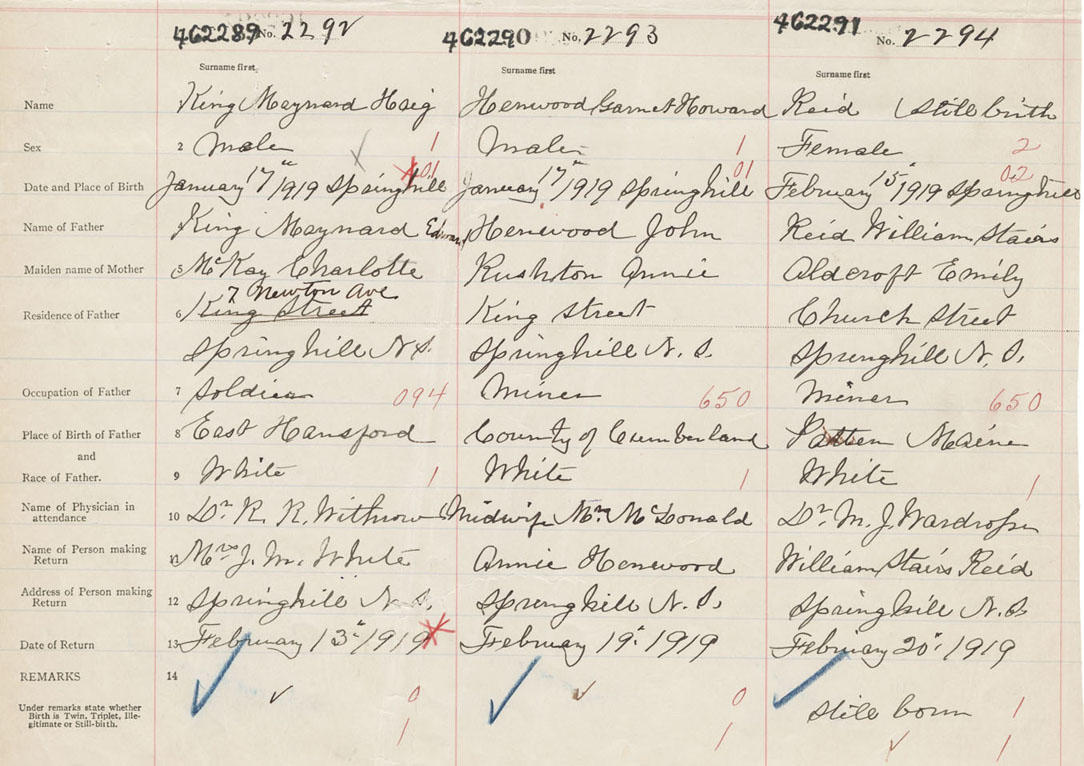 462289 No. 2292 462290 No. 2293 462291 No. 2294
Surname first, Surname first Surname first
Name King Maynard Haig Henwood Garnet Howard Reid (Still birth
Sex 2 Male 1 Male 1 Female 2
01 01 02
Date and Place of Birth January 17" 1919 Springhill January 17" 1919 Springhill February 15" 1919 Springhill
Name of Father King Maynard Edward Henwood John Reid William Stairs
Maiden name of Mother 5 McKay Charlotte Rushton Annie Aldcroft Emily
7 Newton Ave
Residence of Father 6 King Street King Street Church Street
Springhill N.S. Springhill N.S. Springhill N.S.
Occupation of Father 7 Soldier 094 Miner 650 Miner 650
Place of Birth of Father 8 East Hansford County of Cumberland Patten Maine
and
Race of Father. 9 White 1 White 1 White 1
Name of Physician in attendance 10 Dr. R. R. Withrow Midwife Mrs McDonald Dr. M. J. Wardrope
Name of Person making Return 11 Mrs J. M. White Annie Henwood William Stairs Reid
Address of Person making Return 12 Springhill N.S. Springhill N.S. Springhill N.S.
Date of Return 13 February 13" 1919 February 19" 1919 February 20" 1919
REMARKS 14
Under remarks state whether Birth is Twin, Triplet, Ille-gitimate or Still-birth. 0 0 Still born 1
1 1 1